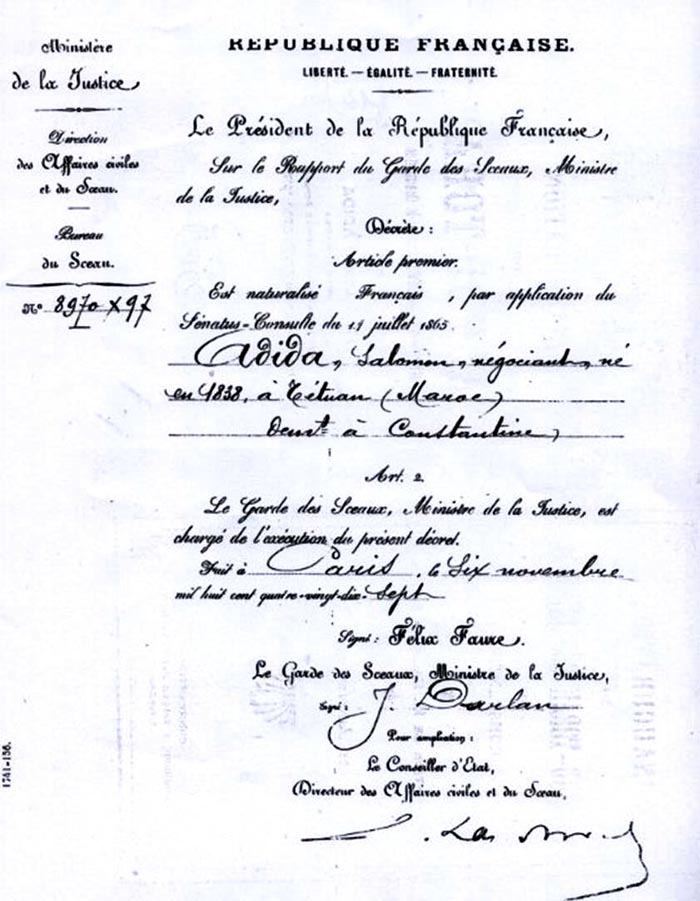 Ministère
de la Justice
Direction
des Affaires civiles
et du Sceau.
Bureau
du Sceau.
N° 8970 X 97
RÉPUBLIQUE FRANÇAISE.
LIBERTÉ. — ÉGALITÉ. — FRATERNITÉ.
Le Président de la République Française,
Sur le Rapport du Garde des Sceaux, Ministre
de la Justice,
Décrète :
Article premier.
Est naturalisé Français, par application du
Sénatus-Consulte du 14 juillet 1865.
Adida, Salomon, négociant, né
en 1838, à Tétuan (Maroc)
demt à Constantine,
Art. 2.
Le Garde des Sceaux, Ministre de la Justice, est
chargé de l'exécution du présent décret.
Fait à Paris, le Six novembre
mil huit cent quatre-vingt-dix-Sept
Signé : Félix Faure.
Le Garde des Sceaux, Ministre de la Justice,
Signé : J. Darlan
Pour ampliation :
Le Conseiller d'Etat,
Directeur des Affaires civiles et du Sceau,
1741-136.